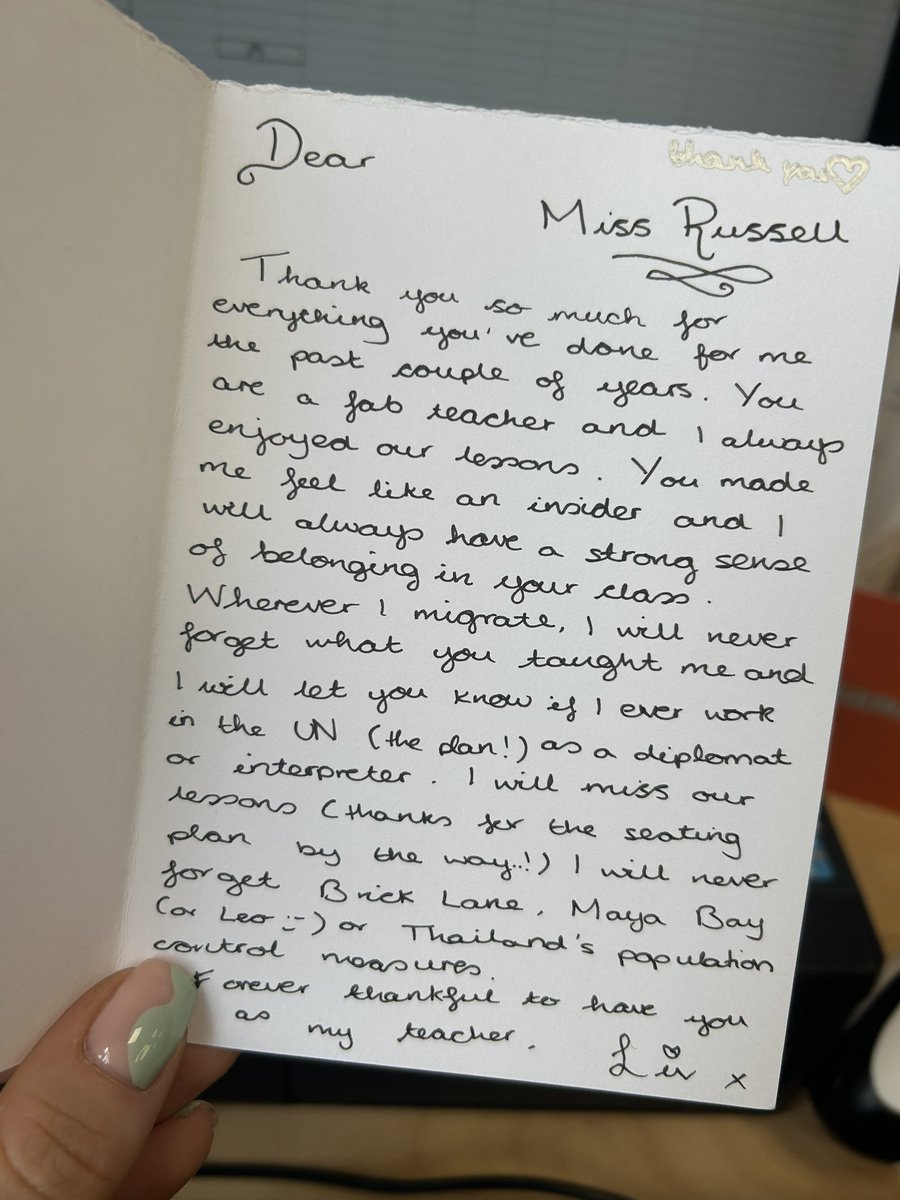 Dear
thank you
Miss Russell
Thank you so much for
everything you've done for me
the past couple of years. You
are a fab teacher and I always
enjoyed our lessons. You made
me feel like an insider and I
will always have a strong sense
of belonging in your class.
Wherever I migrate, I will never
forget what you taught me and
I will let you know if I ever work
in the UN (the plan!) as a diplomat
or interpreter. I will miss our
lessons (thanks for the seating
plan by the way..!) I will never
forget Brick Lane, Maya Bay
(or Leo :-) or Thailand's population
control measures.
Forever thankful to have you
as my teacher.
Liv x